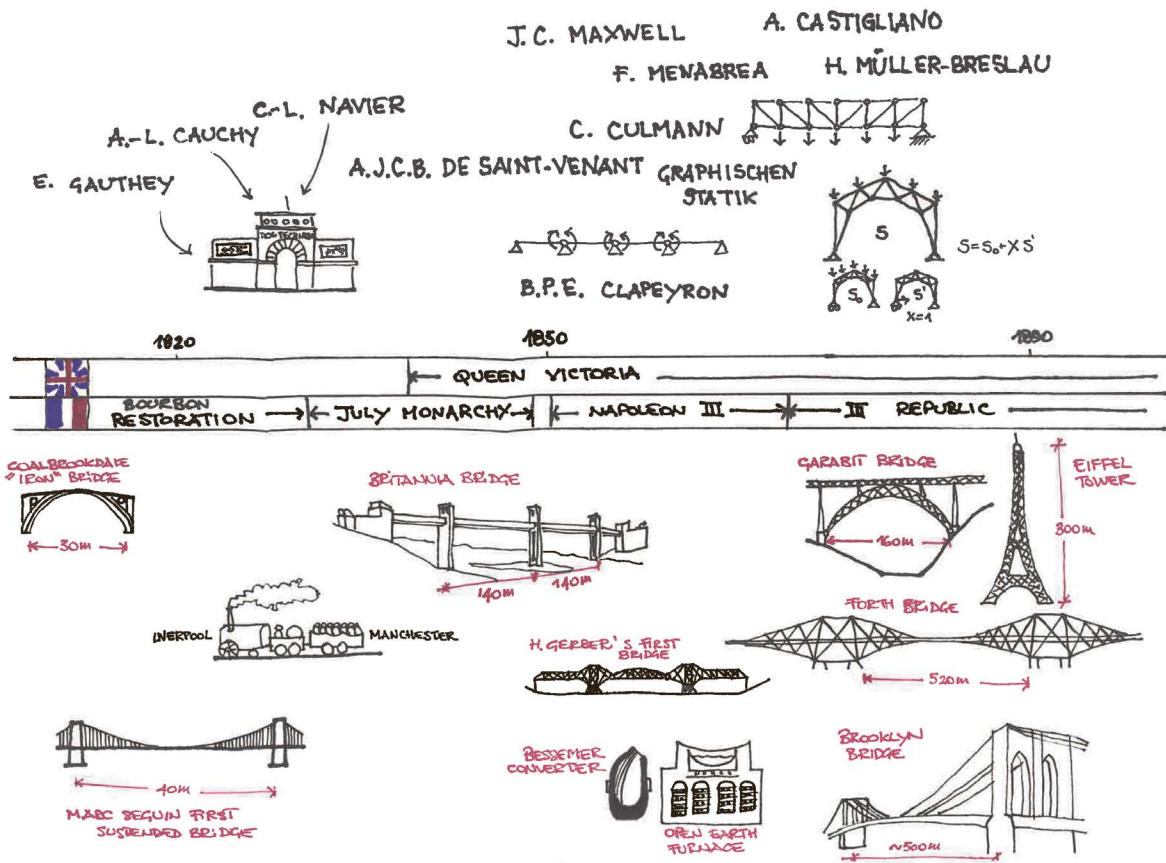 J.C. MAXWELL
A. CASTIGLIANO
F. MENABREA
H. MÜLLER-BRESLAU
C.-L. NAVIER
A.-L. CAUCHY
C. CULMANN
E. GAUTHEY
A.J.C.B. DE SAINT-VENANT
GRAPHISCHEN
STATIK
S
S=S₀+XS'
B.P.E. CLAPEYRON
S₀
S'
X=1
1820
1850
1890
QUEEN VICTORIA
BOURBON
RESTORATION
JULY MONARCHY
NAPOLEON III
III REPUBLIC
COALBROOKDALE
"IRON" BRIDGE
30m
BRITANNIA BRIDGE
140m
140m
GARABIT BRIDGE
160m
EIFFEL
TOWER
300m
LIVERPOOL
MANCHESTER
H. GERBER'S FIRST
BRIDGE
FORTH BRIDGE
520m
40m
MARC SEGUIN FIRST
SUSTENDED BRIDGE
BESSEMER
CONVERTER
OPEN EARTH
FURNACE
BROOKLYN
BRIDGE
~500m